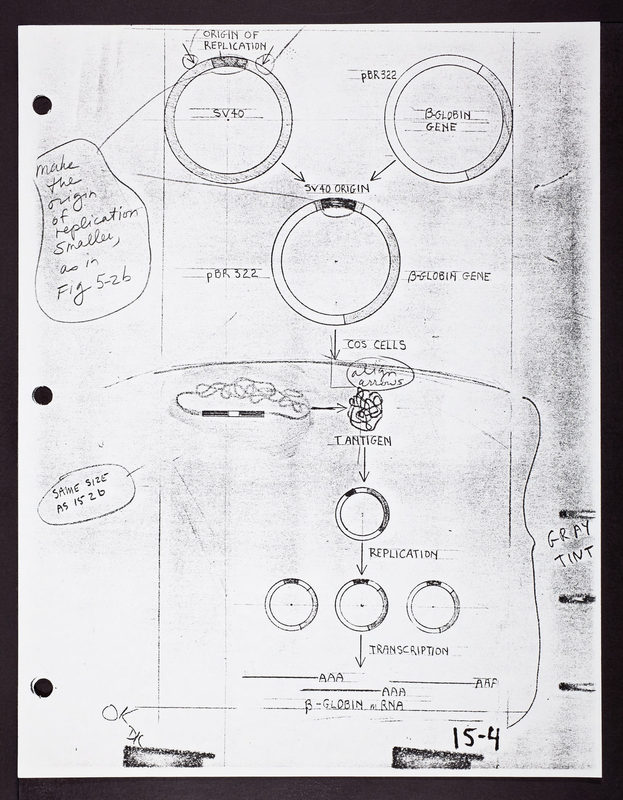 ORIGIN OF
REPLICATION
SV40
pBR322
β-GLOBIN
GENE
make
the
origin
of
replication
smaller,
as in
Fig 5-2b
SV40 ORIGIN
pBR 322
β-GLOBIN GENE
COS CELLS
align
arrows
T ANTIGEN
SAME SIZE
AS 15 2b
GRAY
TINT
REPLICATION
TRANSCRIPTION
AAA
AAA
AAA
β-GLOBIN mRNA
15-4